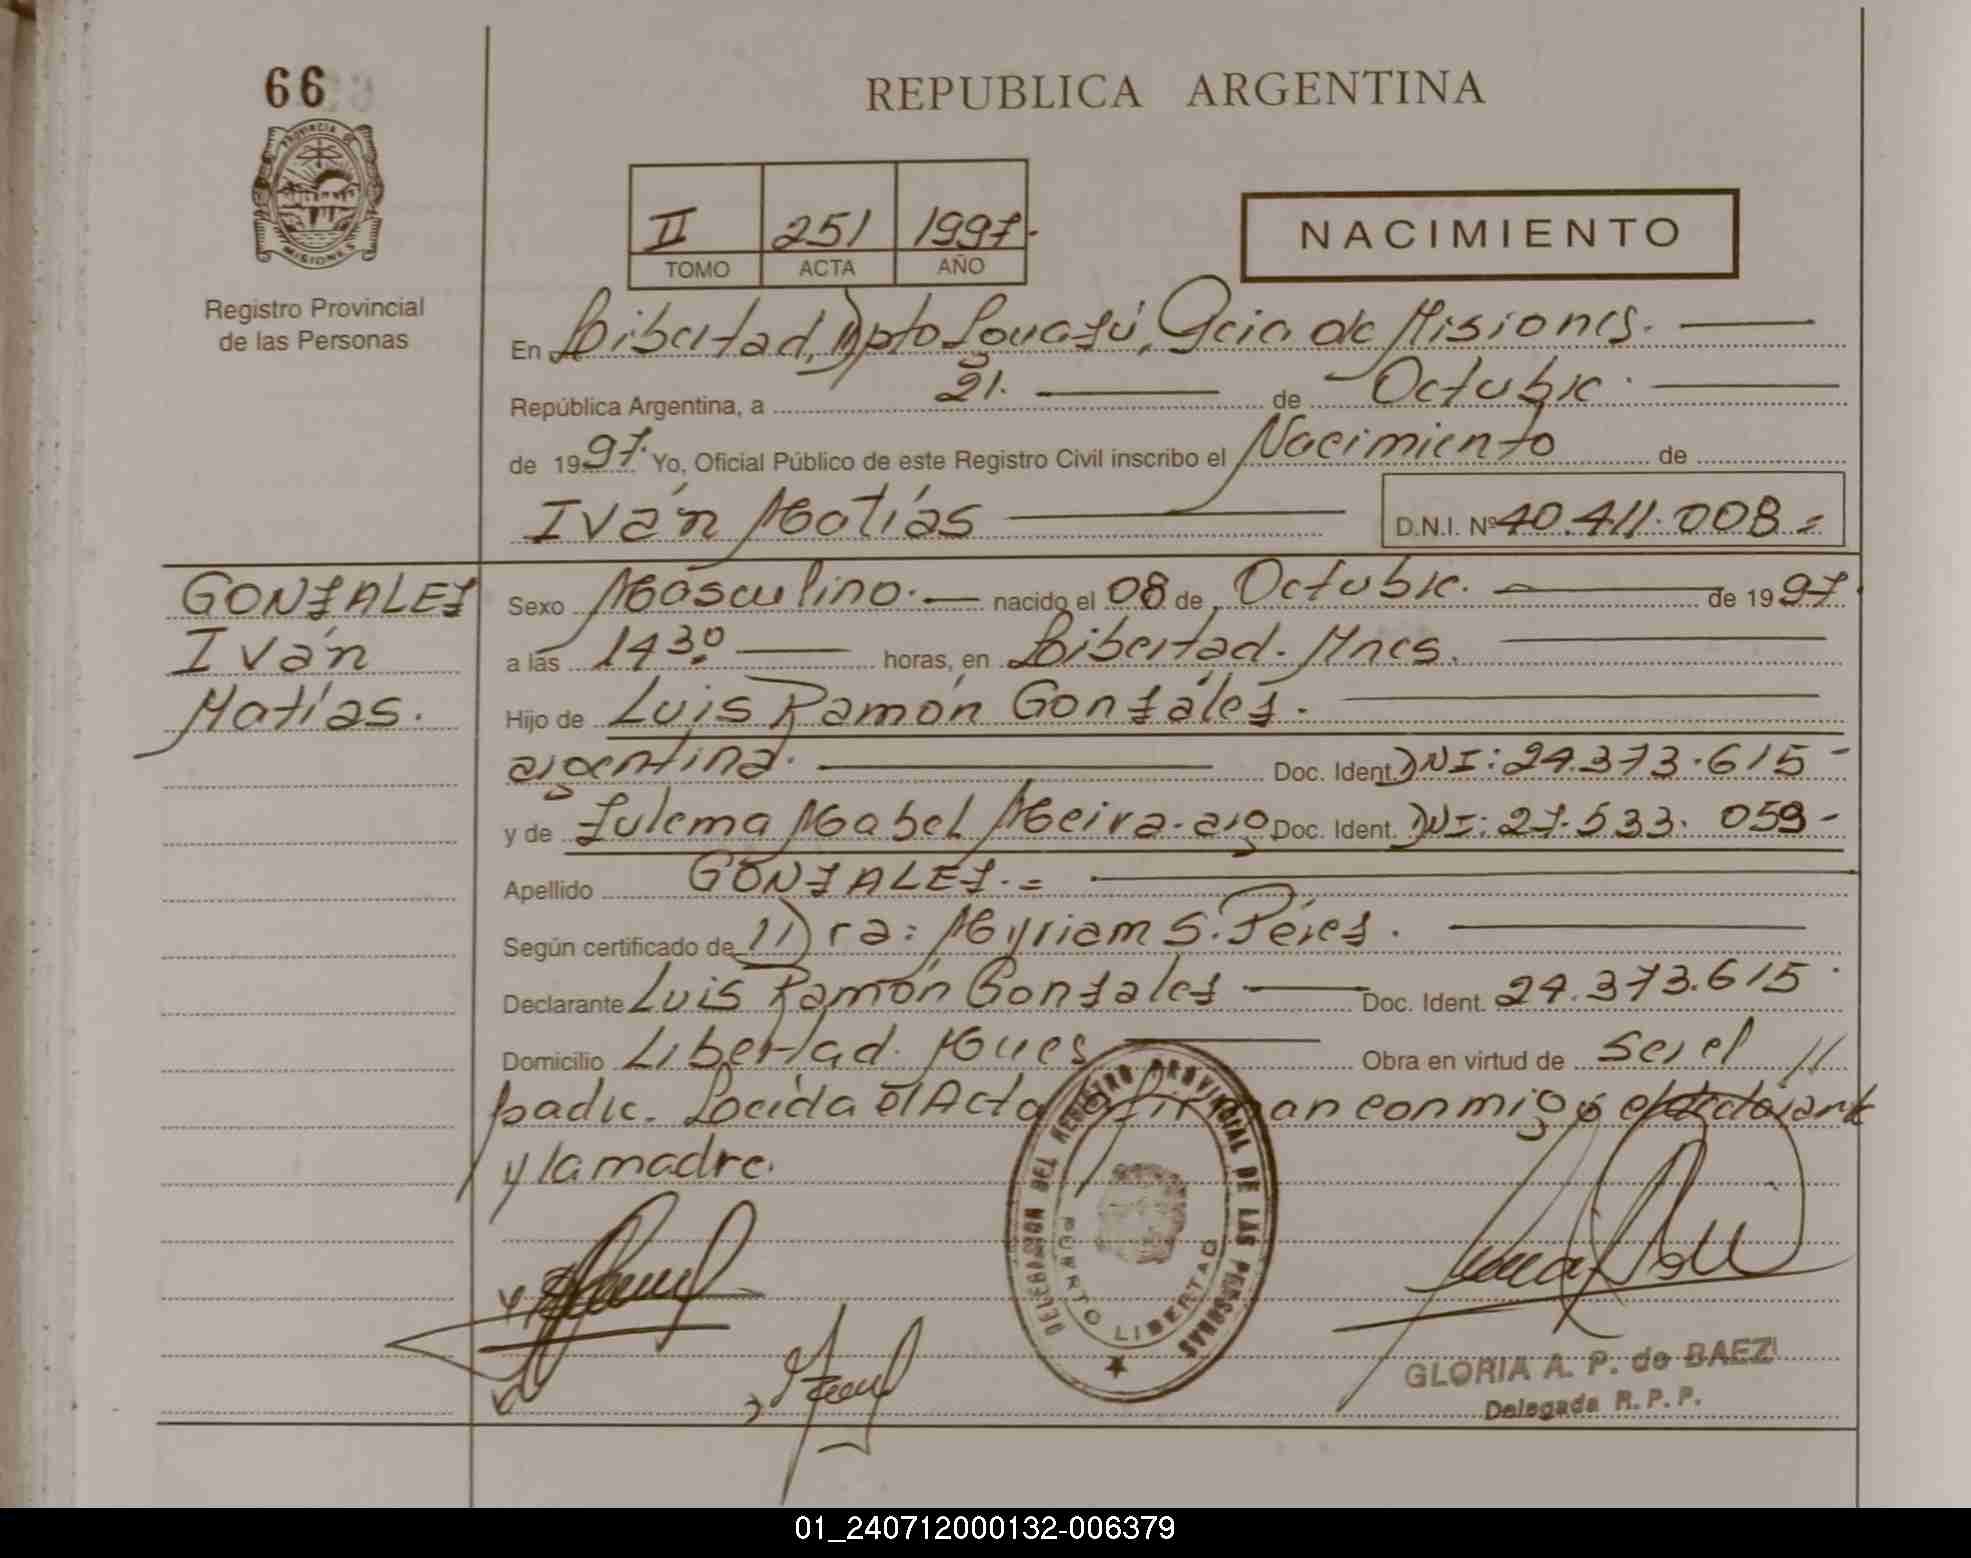 66
REPUBLICA ARGENTINA
PROVINCIA DE
MISIONES
Registro Provincial
de las Personas
II 251 1997.
TOMO ACTA AÑO
NACIMIENTO
En Libertad, Dpto Iguazú, Pcia de Misiones.
República Argentina, a 21. de Octubre.
de 1997. Yo, Oficial Público de este Registro Civil inscribo el Nacimiento de
Iván Matías D.N.I. Nº 40.411.008.=
GONZALEZ
Iván
Matías.
Sexo Masculino. nacido el 08 de Octubre. de 1997.
a las 14 30 horas, en Libertad. Mnes.
Hijo de Luis Ramón Gonzáles.
argentina. Doc. Ident. DNI: 24.373.615-
y de Zulema Mabel Meira. arg Doc. Ident. DNI: 27.533.059-
Apellido GONZALEZ.=
Según certificado de Dra: Myriam S. Pérez.
Declarante Luis Ramón Gonzalez Doc. Ident. 24.373.615.
Domicilio Libertad. Mnes Obra en virtud de ser el //
padre. Leída el Acta firman conmigo el declarante
y la madre.
DELEGACION DEL REGISTRO PROVINCIAL DE LAS PERSONAS
PUERTO LIBERTAD
GLORIA A. P. de BAEZ
Delegada R. P. P.
01_240712000132-006379